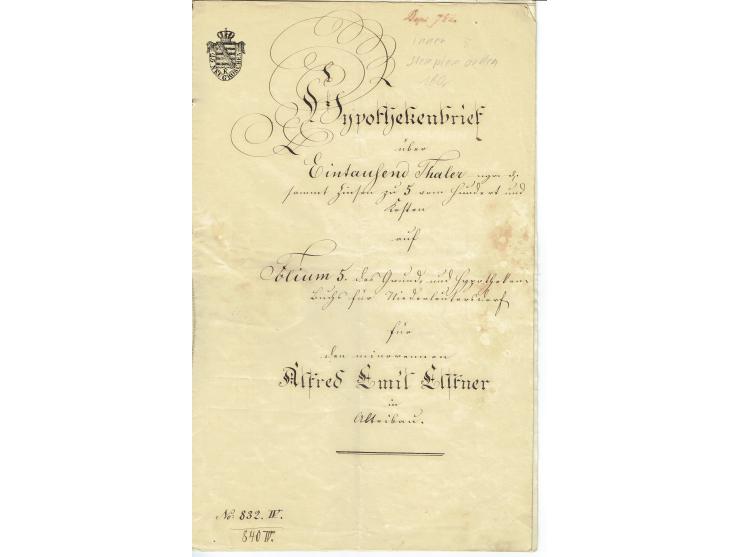 Hypothekenbrief
über
Eintausend Thaler
sammt Zinsen zu 5 vom Hundert und
Kosten
auf
Folium 5. des Grund- und Hypotheken-
Buchs für Niederleutersdorf
für
den minorennen
Alfred Emil Elstner
in
Alteibau.
No. 832. IV.
840 IV.